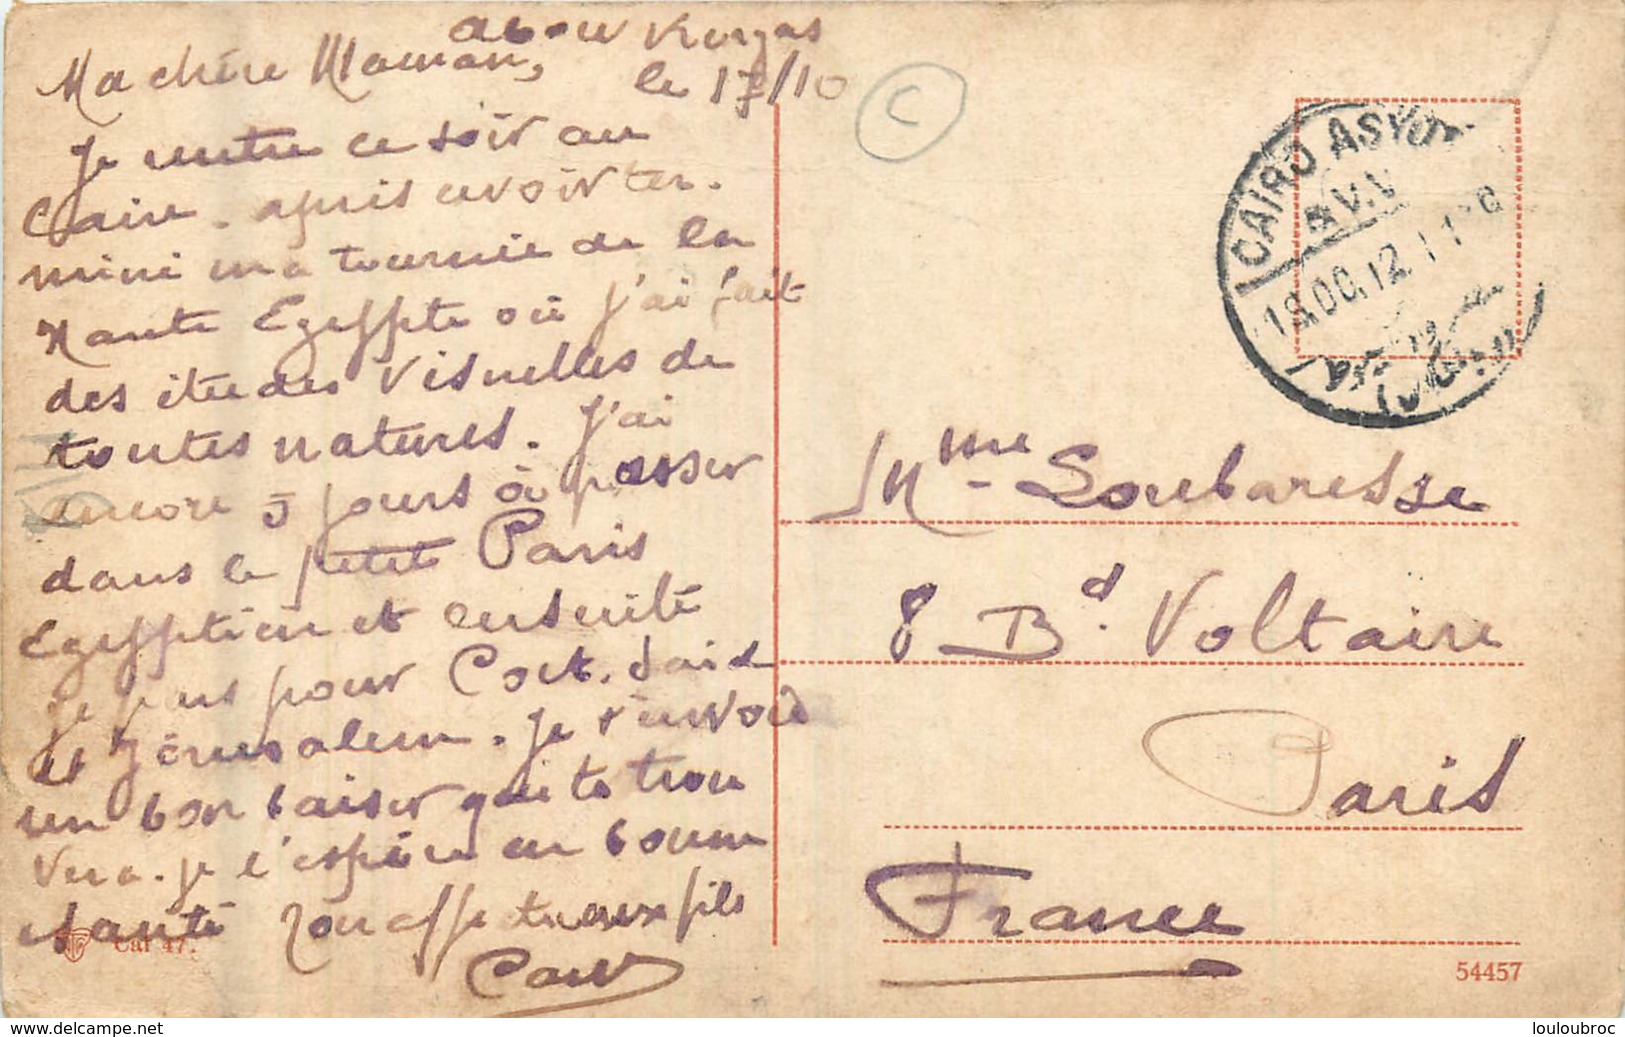 abou Kergas
le 17/10
Ma chère Maman,
Je rentre ce soir au
Caire. après avoir ter.
miné ma tournée de la
Haute Egypte où j'ai fait
des études visuelles de
toutes natures. J'ai
encore 5 jours à passer
dans le petit Paris
Egyptien et ensuite
je pars pour Port. Said
et Jérusalem. Je t'envoie
un bon baiser qui te trou
vera. je l'espère en bonne
santé Ton affectueux fils
C
CAIRO ASYUT
T.P.O.
19.OC.12.
Mme Soubaresse
8 Bd. Voltaire
Paris
France
Caf 47.
54457
www.delcampe.net
louloubroc